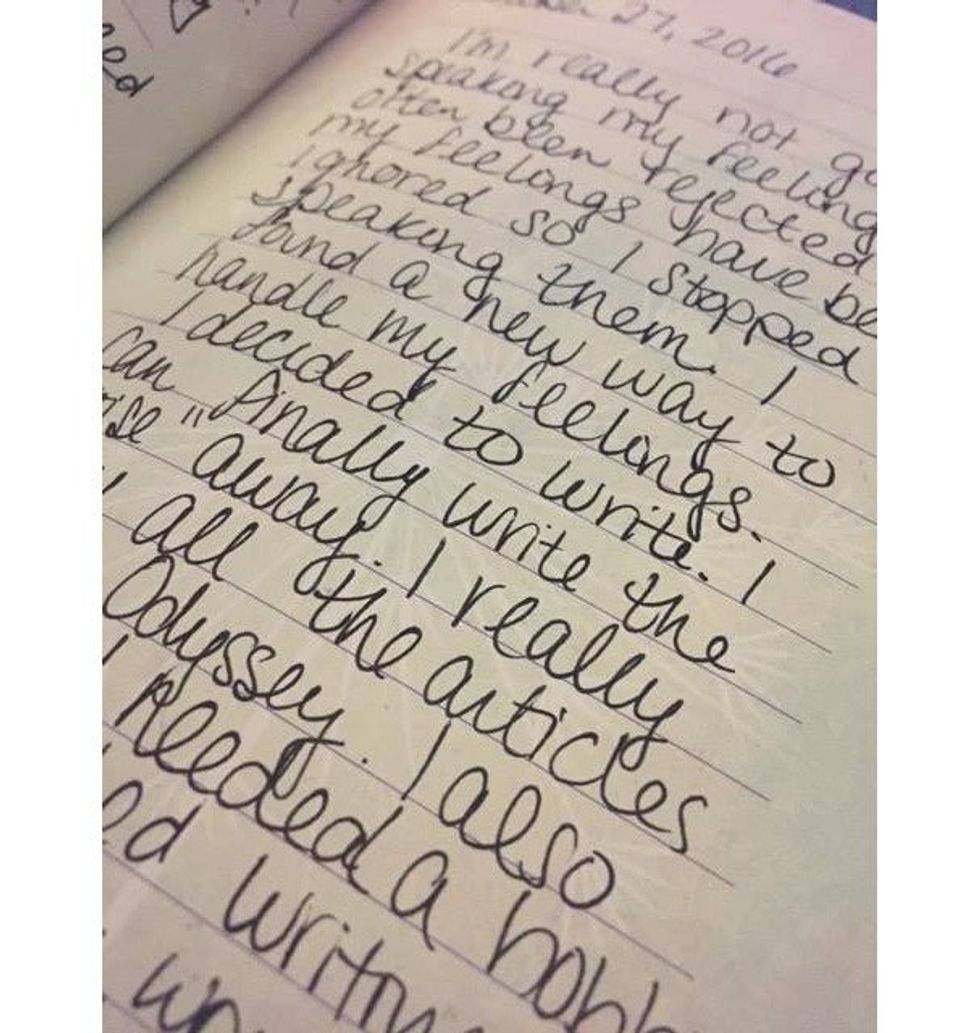 27, 2016
I'm really not
speaking my feelings
often been rejected
my feelings have be
ignored so I stopped
speaking them. I
found a new way to
handle my feelings.
I decided to write. I
can finally write the
ise" away. I really
all the articles
Odyssey. I also
needed a hobb
ed writin
ed